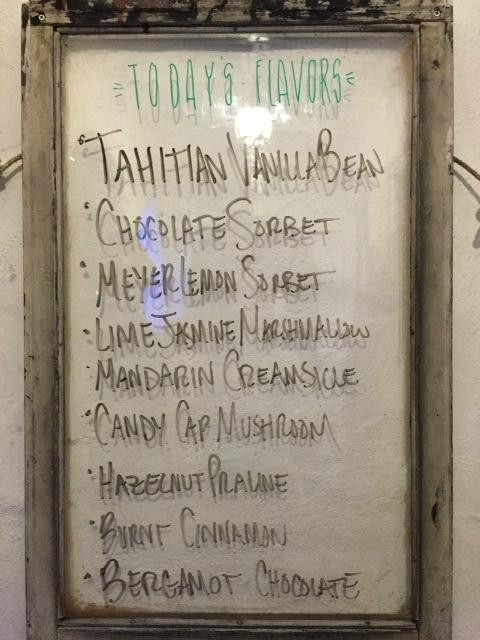 TODAY'S FLAVORS
• TAHITIAN VANILLA BEAN
• CHOCOLATE SORBET
• MEYER LEMON SORBET
• LIME JASMINE MARSHMALLOW
• MANDARIN CREAMSICLE
• CANDY CAP MUSHROOM
• HAZELNUT PRALINE
• BURNT CINNAMON
• BERGAMOT CHOCOLATE